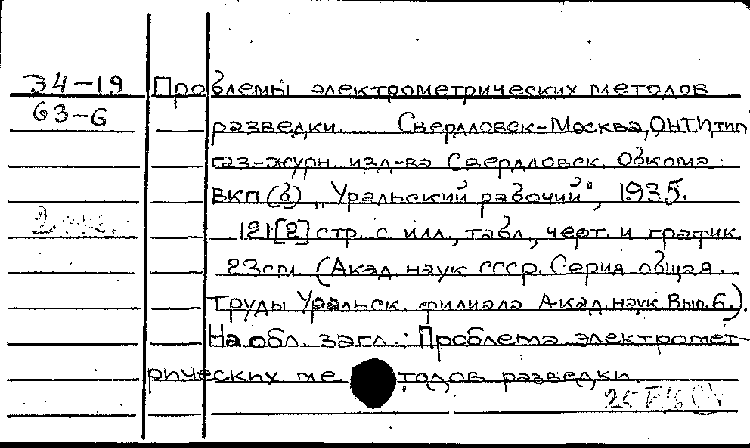 34-19 Проблемы электрометрических методов
63-6 разведки. Свердловск-Москва, ОНТИ, тип.
газ-журн. изд-ва Свердловск. Обкома
ВКП(б) „Уральский рабочий", 1935.
2 экз. 121[2] стр. с илл., табл., черт. и график.
23см. (Акад. наук СССР. Серия общая.
Труды Уральск. филиала Акад. наук Вып. 6.).
На обл. загл.: Проблема электромет-
рических методов разведки.